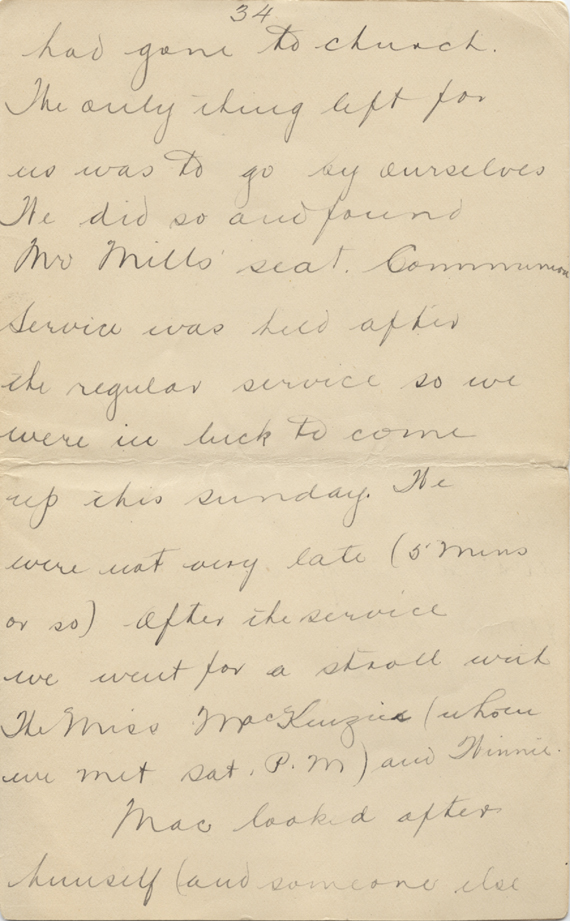 34
had gone to church.
The only thing left for
us was to go by ourselves
We did so and found
Mr Mills' seat. Communion
Service was held after
the regular service so we
were in luck to come
up this sunday. We
were not very late (5 mins
or so) After the service
we went for a stroll with
The Miss MacKenzies (whom
we met sat. P.M) and Winnie.
Mac looked after
himself (and someone else